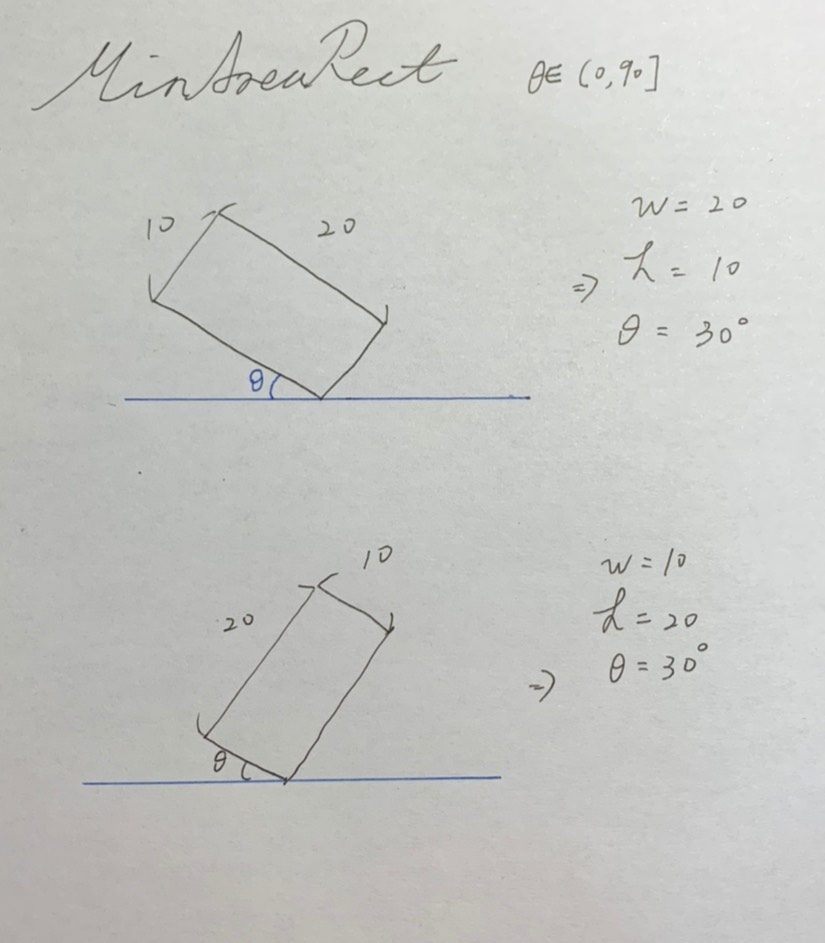 MinAreaRect θ∈ (0,90]
10 20
w = 20
⇒ h = 10
θ = 30°
θ
10
20
w = 10
h = 20
⇒ θ = 30°
θ